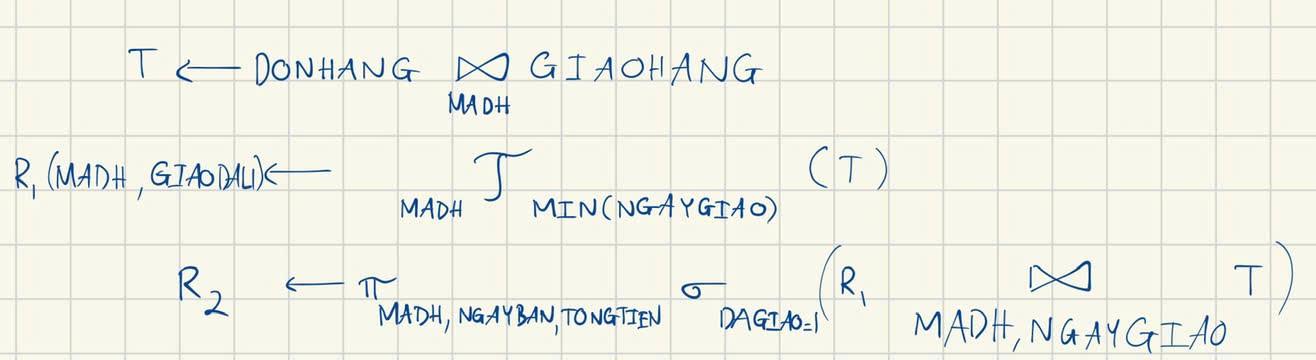 T ← DONHANG ⋈ GIAOHANG
MADH
R₁ (MADH, GIAODAU) ← MADH ℑ MIN(NGAYGIAO) (T)
R₂ ← π MADH, NGAYBAN, TONGTIEN σ DAGIAO=1 (R₁ ⋈ T)
MADH, NGAYGIAO